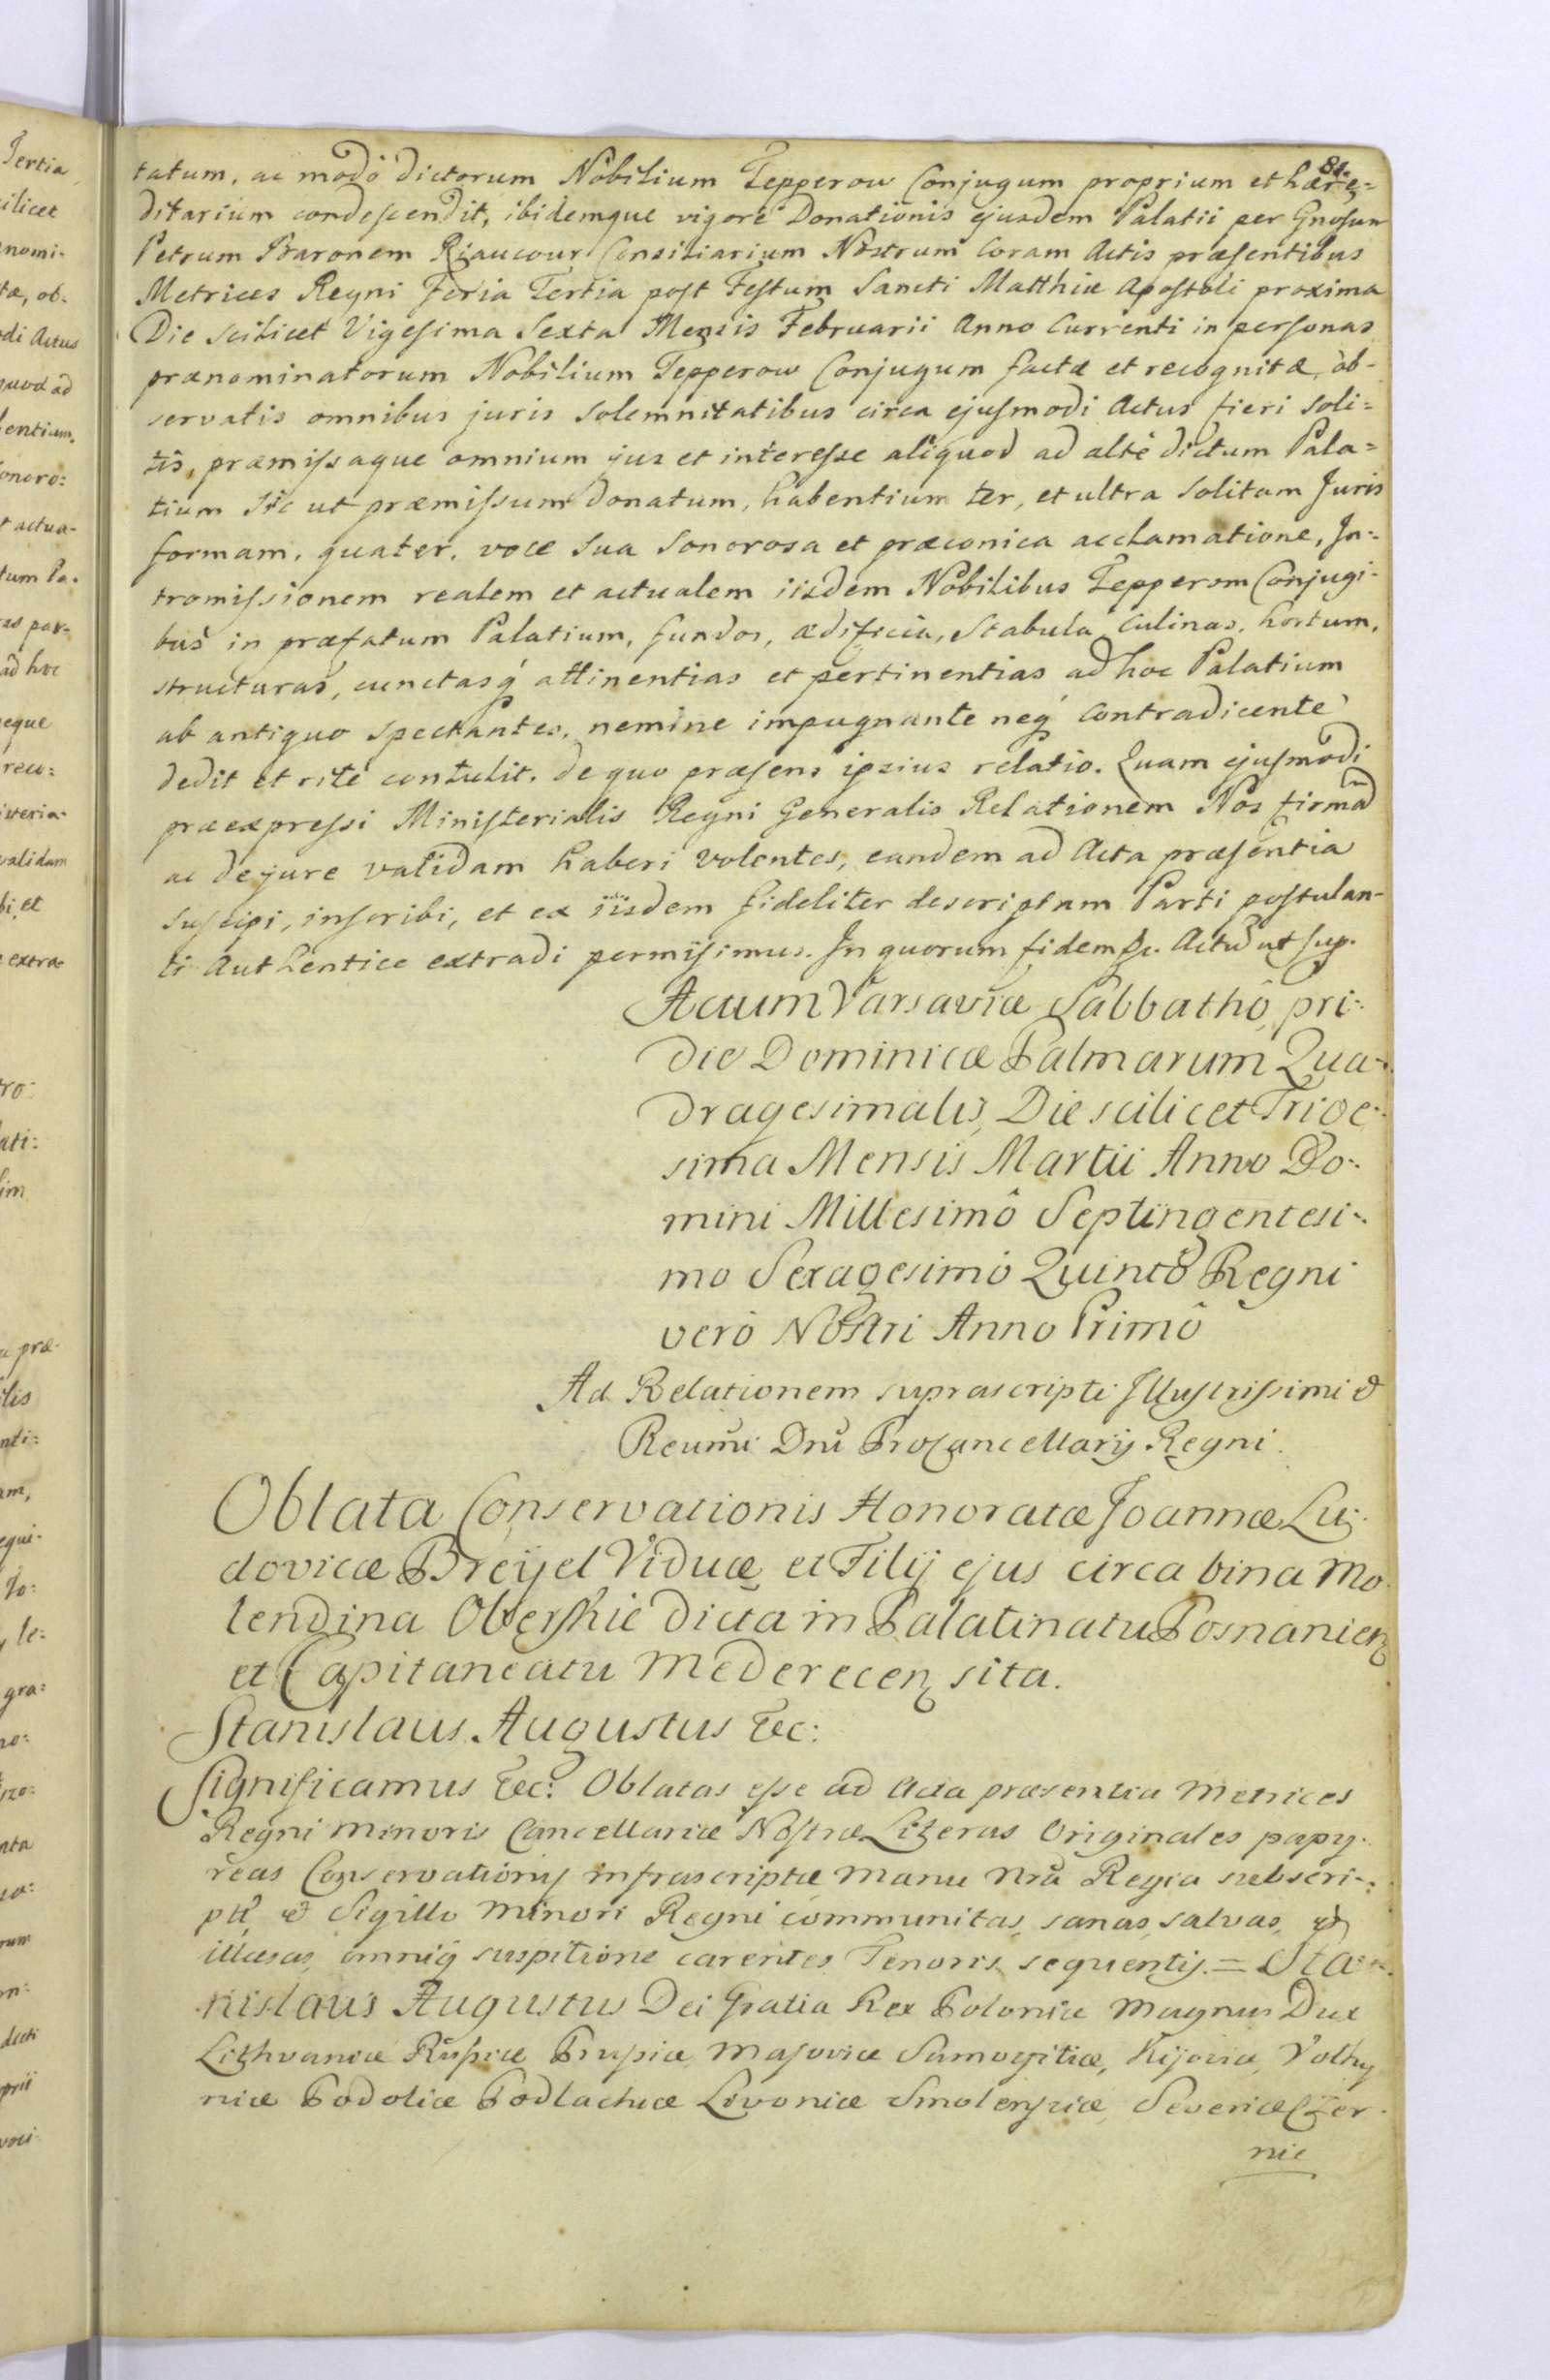 81.
tatum, ac modò dictorum Nobilium Tepperow Conjugum proprium et hære=
ditarium condescendit, ibidemque vigore Donationis ejusdem Palatii per Gnosum
Petrum Baronem Riaucour Consiliarium Nostrum Coram Actis præsentibus
Metrices Regni Feria Tertia post Festum Sancti Matthiæ Apostoli proxima
Die scilicet Vigesima Sexta Mensis Februarii Anno Currenti in personas
prænominatorum Nobilium Tepperow Conjugum factæ et recognitæ, ob-
servatis omnibus juris solemnitatibus circa ejusmodi Actus fieri soli=
tis, præmissaque omnium jus et interesse aliquod ad altè dictum Pala=
tium sic ut præmissum donatum, habentium ter, et ultra solitam Juris
formam, quater, voce sua sonorosa et præconica acclamatione, In=
tromissionem realem et actualem iisdem Nobilibus Tepperom Conjugi-
bus in præfatum Palatium, fundos, ædificia, Stabula Culinas, hortum,
structuras, cunctasq́ attinentias et pertinentias ad hoc Palatium
ab antiquo spectantes, nemine impugnante neq́ contradicente
dedit et ritè contulit, de quo præsens ipsius relatio. Quam ejusmodi
præexpressi Ministerialis Regni Generalis Relationem Nos firmā
ac de jure validam haberi volentes, eandem ad Acta præsentia
suscipi, inscribi, et ex iisdem fideliter descriptam Parti postulan-
ti Authentice extradi permisimus. In quorum fidem &c. Actū ut sup.
Actum Varsaviæ Sabbathô pri:
die Dominicæ Palmarum Qua:
dragesimalis, Die scilicet Trige:
sima Mensis Martii Anno Do:
mini Millesimô Septingentesi:
mo Sexagesimô Quintô Regni
verò Nostri Anno Primô
Ad Relationem suprascripti Illustrissimi &
Reumi Dni Procancellarij Regni.
Oblata Conservationis Honoratæ Joannæ Lu:
dovicæ Breijel Viduæ et Filij ejus circa bina Mo
lendina Oberskie dicta in Palatinatu Posnanien
et Capitaneatu Mederecen sita.
Stanislaus Augustus &c:
Significamus &c: Oblatas esse ad Acta præsentia Metrices
Regni Minoris Cancellariæ Nostræ Literas Originales papy:
reas Conservationis infrascriptæ Manu Nrā Regia subscri:
pti, & Sigillo Minori Regni communitas, sanas, salvas, et
illæsas, omniq́ suspitione carentes Tenoris sequentis. = Sta:
nislaus Augustus Dei Gratia Rex Poloniæ Magnus Dux
Lithvaniæ Russiæ Prussiæ Masoviæ Samogitiæ, Kijoviæ, Volhy
niæ Podoliæ Podlachiæ Livoniæ Smolensciæ Severiæ Czer
nie